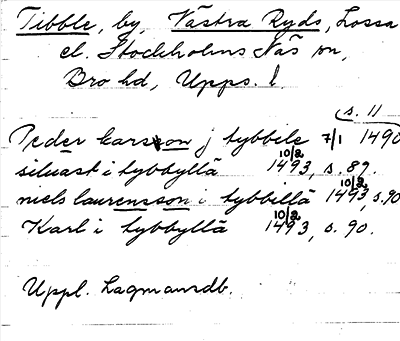 Tibble, by, Västra Ryds, Lossa
el. Stockholms Näs sn,
Bro hd, Upps. l.
s. 11
Peder Larsson j tybbele 7/1 1490
siluast i tybbyllä 10/2 1493, s. 89.
niels laurensson i tybbillä 10/2 1493, s. 90
Karl i tybbyllä 10/2 1493, s. 90.
Uppl. Lagmansdb.